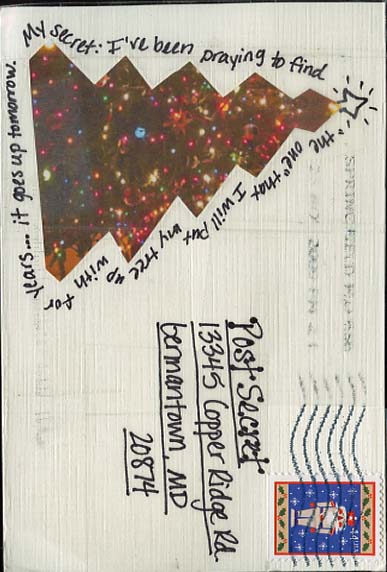 My secret: I've been praying to find
"the one" that I will put my tree up with for
years... it goes up tomorrow.
Post Secret
13345 Copper Ridge Rd.
Germantown, MD
20874